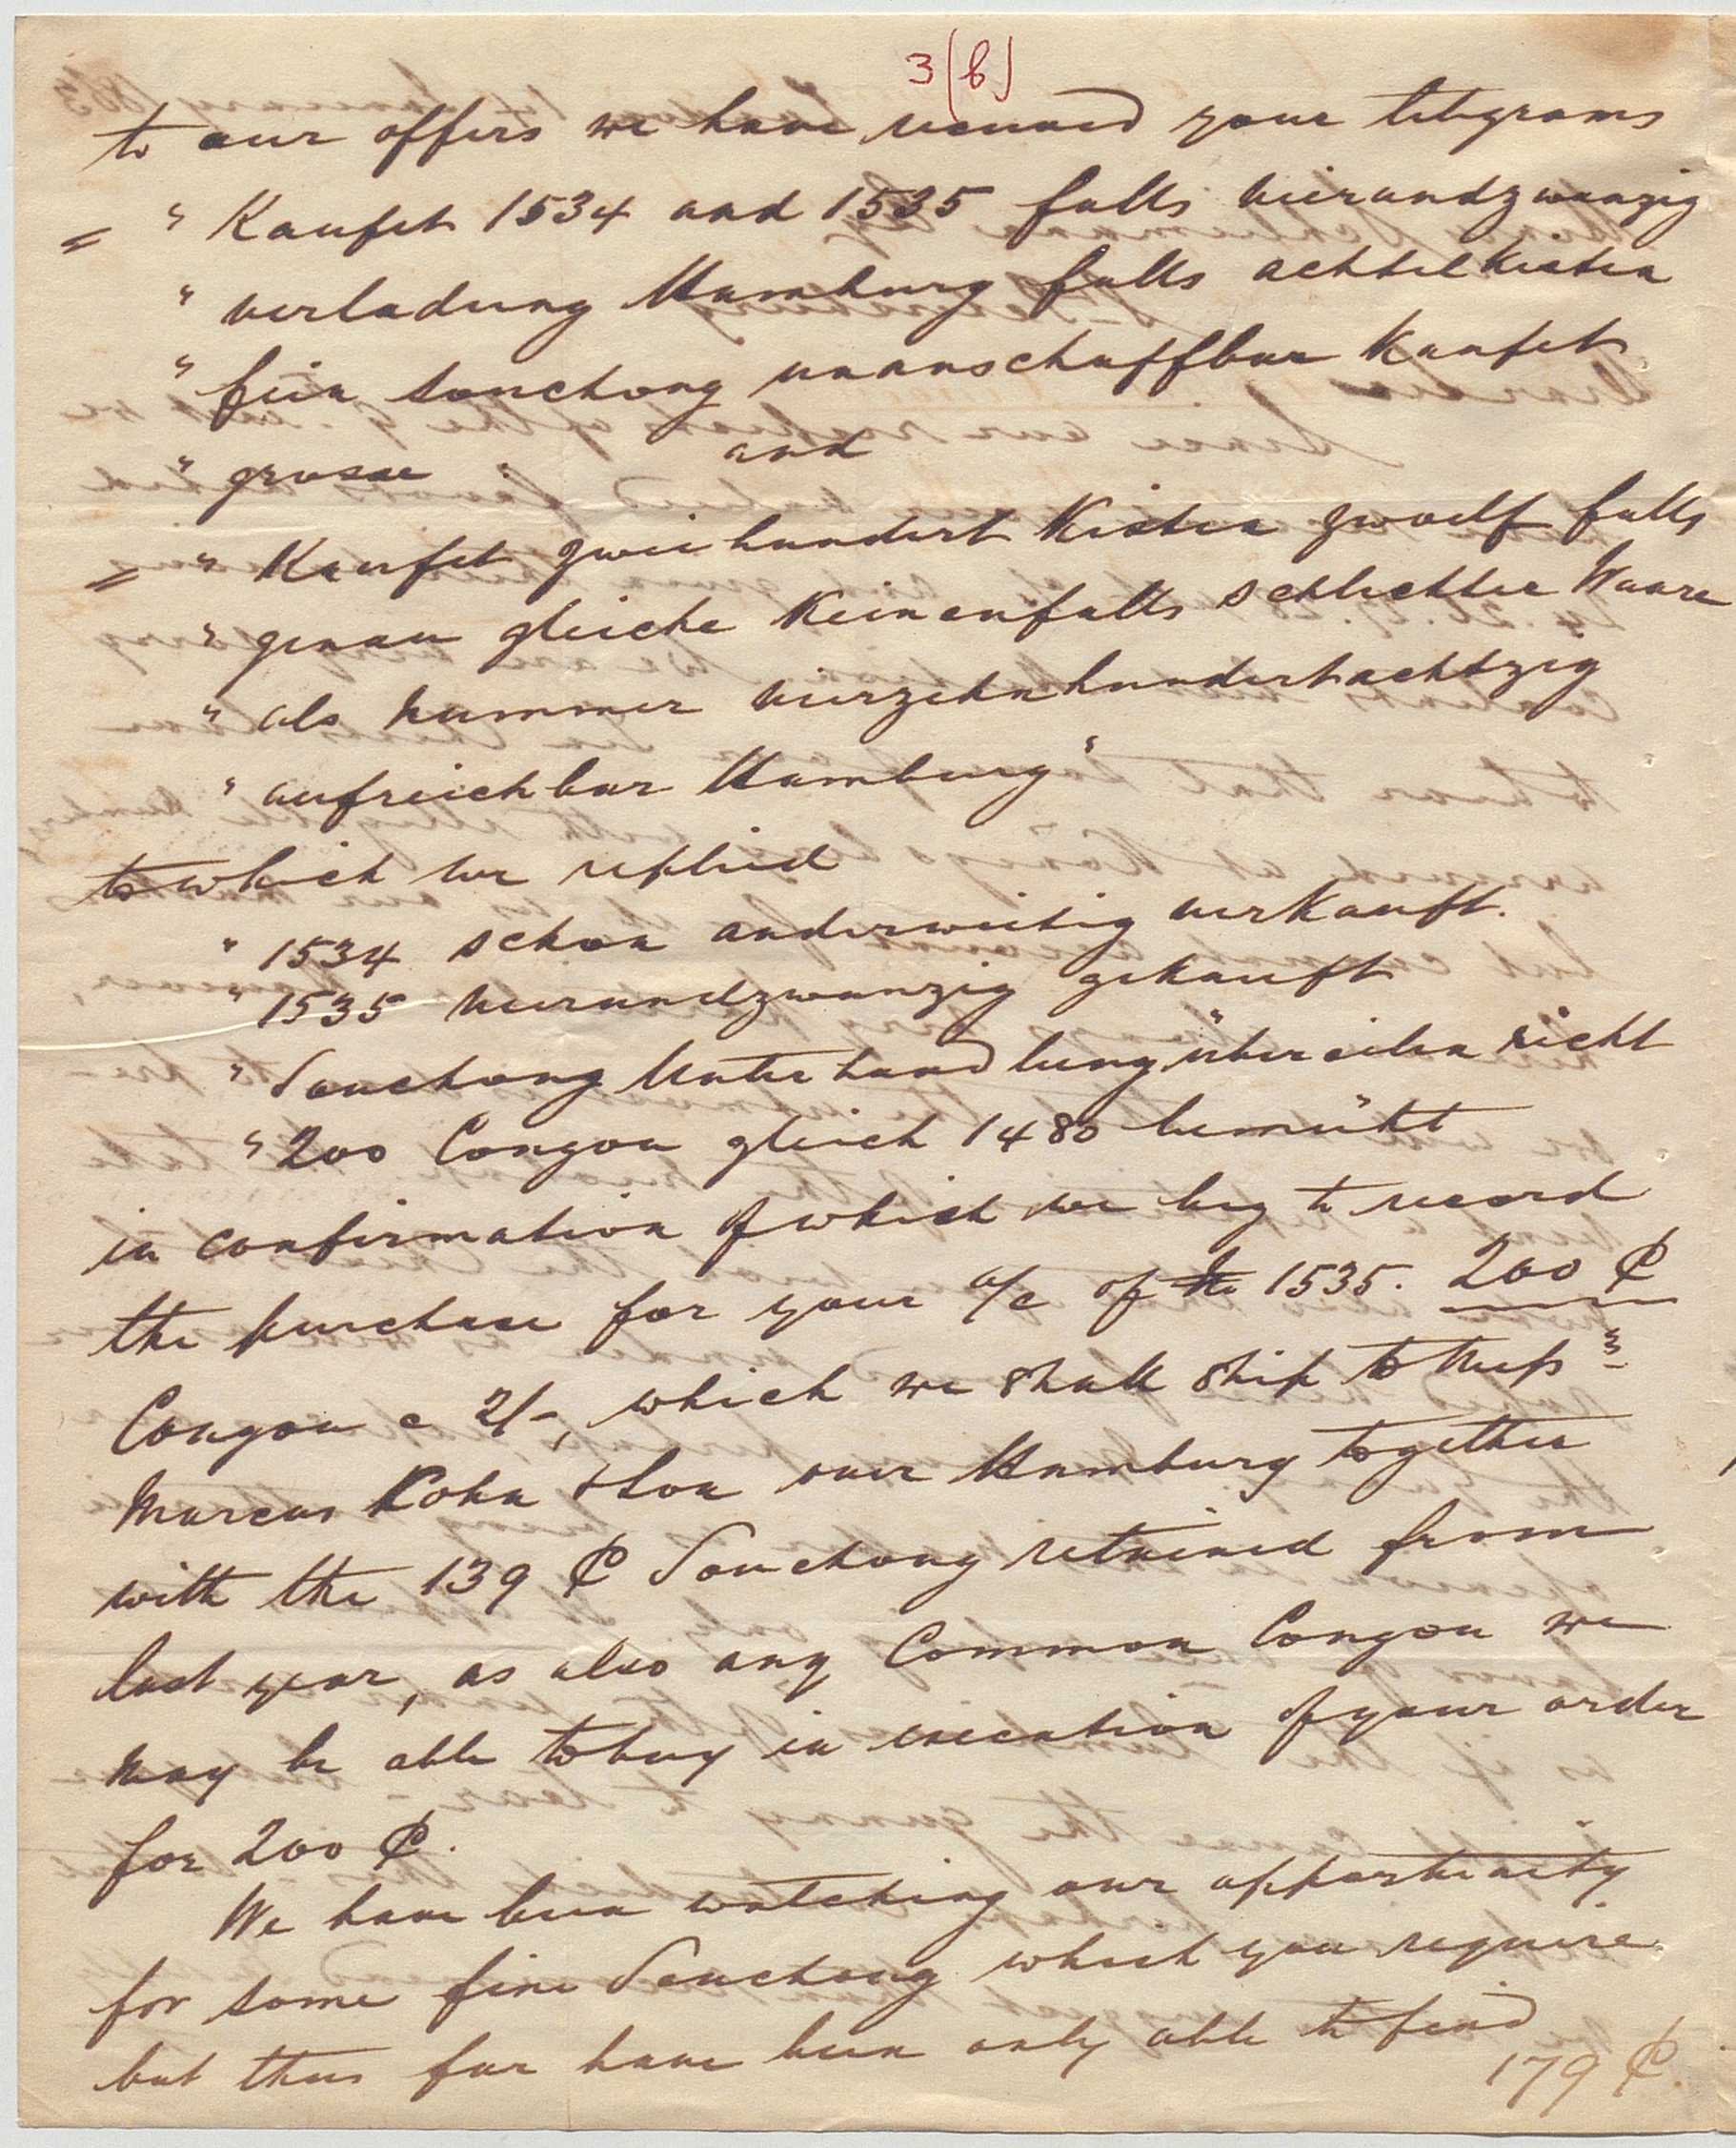 3(b)
to our offers we have received your telegrams
= " Kaufet 1534 and 1535 falls vierundzwanzig
" verladung Hamburg falls achtelkisten
" fein souchong unanschaffbar Kaufet
" grosse
and
= " Kaufet zweihundert Kisten zwoelf falls
" genau gleiche Keinenfalls schlechter Waare
" als nummer vierzehnhundertachtzig
" aufreichbar Hamburg"
to which we replied
" 1534 schon anderweitig verkauft.
" 1535 vierundzwanzig gekauft
" Souchong Unterhandlung übereilen nicht
" 200 Congou gleich 1480 bemüht
in confirmation of which we beg to record
the purchase for your a/c of 1535. 200 ₵
Congou a 2/-, which we shall ship to Mess rs
Marcus Cohn & Son over Hamburg together
with the 139 ₵ Souchong retained from
last year, as also any Common Congou we
may be able to buy in execution of your order
for 200 ₵.
We have been watching our opportunity
for some fine Souchong which you require.
but thus far have been only able to find
179 ₵.